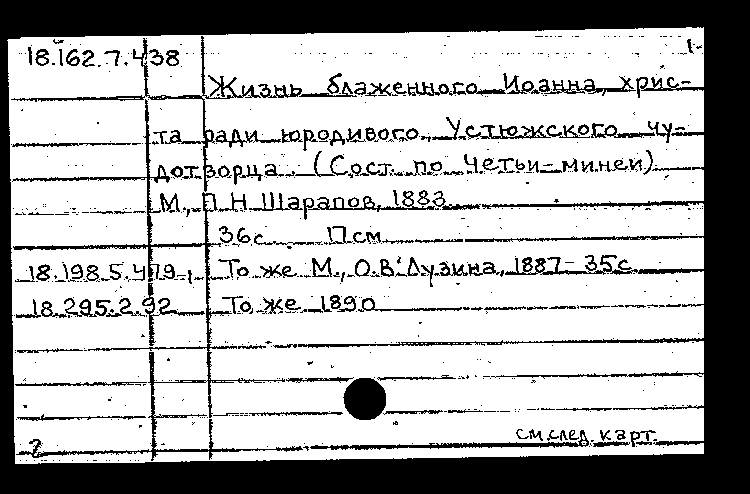 18.162.7.438
1.
Жизнь блаженного Иоанна, хрис-
та ради юродивого, Устюжского чу-
дотворца. (Сост. по Четьи-минеи)
М., П.Н. Шарапов, 1883
36с. 17см.
18.198.5.479, То же М., О.В. Лузина, 1887- 35с.
18.295.2.92 То же 1890
см.след. карт.
2